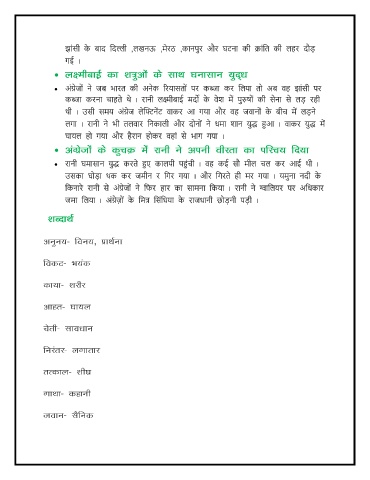 झांसी के बाद दिल्ली ,लखनऊ ,मेरठ ,कानपुर और घटना की क्रांति की लहर दौड़
गई ।
• लक्ष्मीबाई का शत्रुओं के साथ घनासान युद्ध
• अंग्रेजों ने जब भारत की अनेक रियासतों पर कब्जा कर लिया तो अब वह झांसी पर
कब्जा करना चाहते थे । रानी लक्ष्मीबाई मर्दों के वेश में पुरुषों की सेना से लड़ रही
थी । उसी समय अंग्रेज लेफ्टिनेंट वाकर आ गया और वह जवानों के बीच में लड़ने
लगा । रानी ने भी तलवार निकाली और दोनों ने धमा शान युद्ध हुआ । वाकर युद्ध में
घायल हो गया और हैरान होकर वहां से भाग गया ।
• अंग्रेजों के कुचक्र में रानी ने अपनी वीरता का परिचय दिया
• रानी घमासान युद्ध करते हुए कालपी पहुंची । वह कई सौ मील चल कर आई थी ।
उसका घोड़ा थक कर जमीन र गिर गया । और गिरते ही मर गया । यमुना नदी के
किनारे रानी से अंग्रेजों ने फिर हार का सामना किया । रानी ने ग्वालियर पर अधिकार
जमा लिया । अंग्रेज़ों के मित्र सिंधिया के राजधानी छोड़नी पड़ी ।
शब्दार्थ
अनुनय- विनय, प्रार्थना
विकट- भयंक
काया- शरीर
आहत- घायल
चेती- सावधान
निरंतर- लगातार
तत्काल- शीघ्र
गाथा- कहानी
जवान- सैनिक